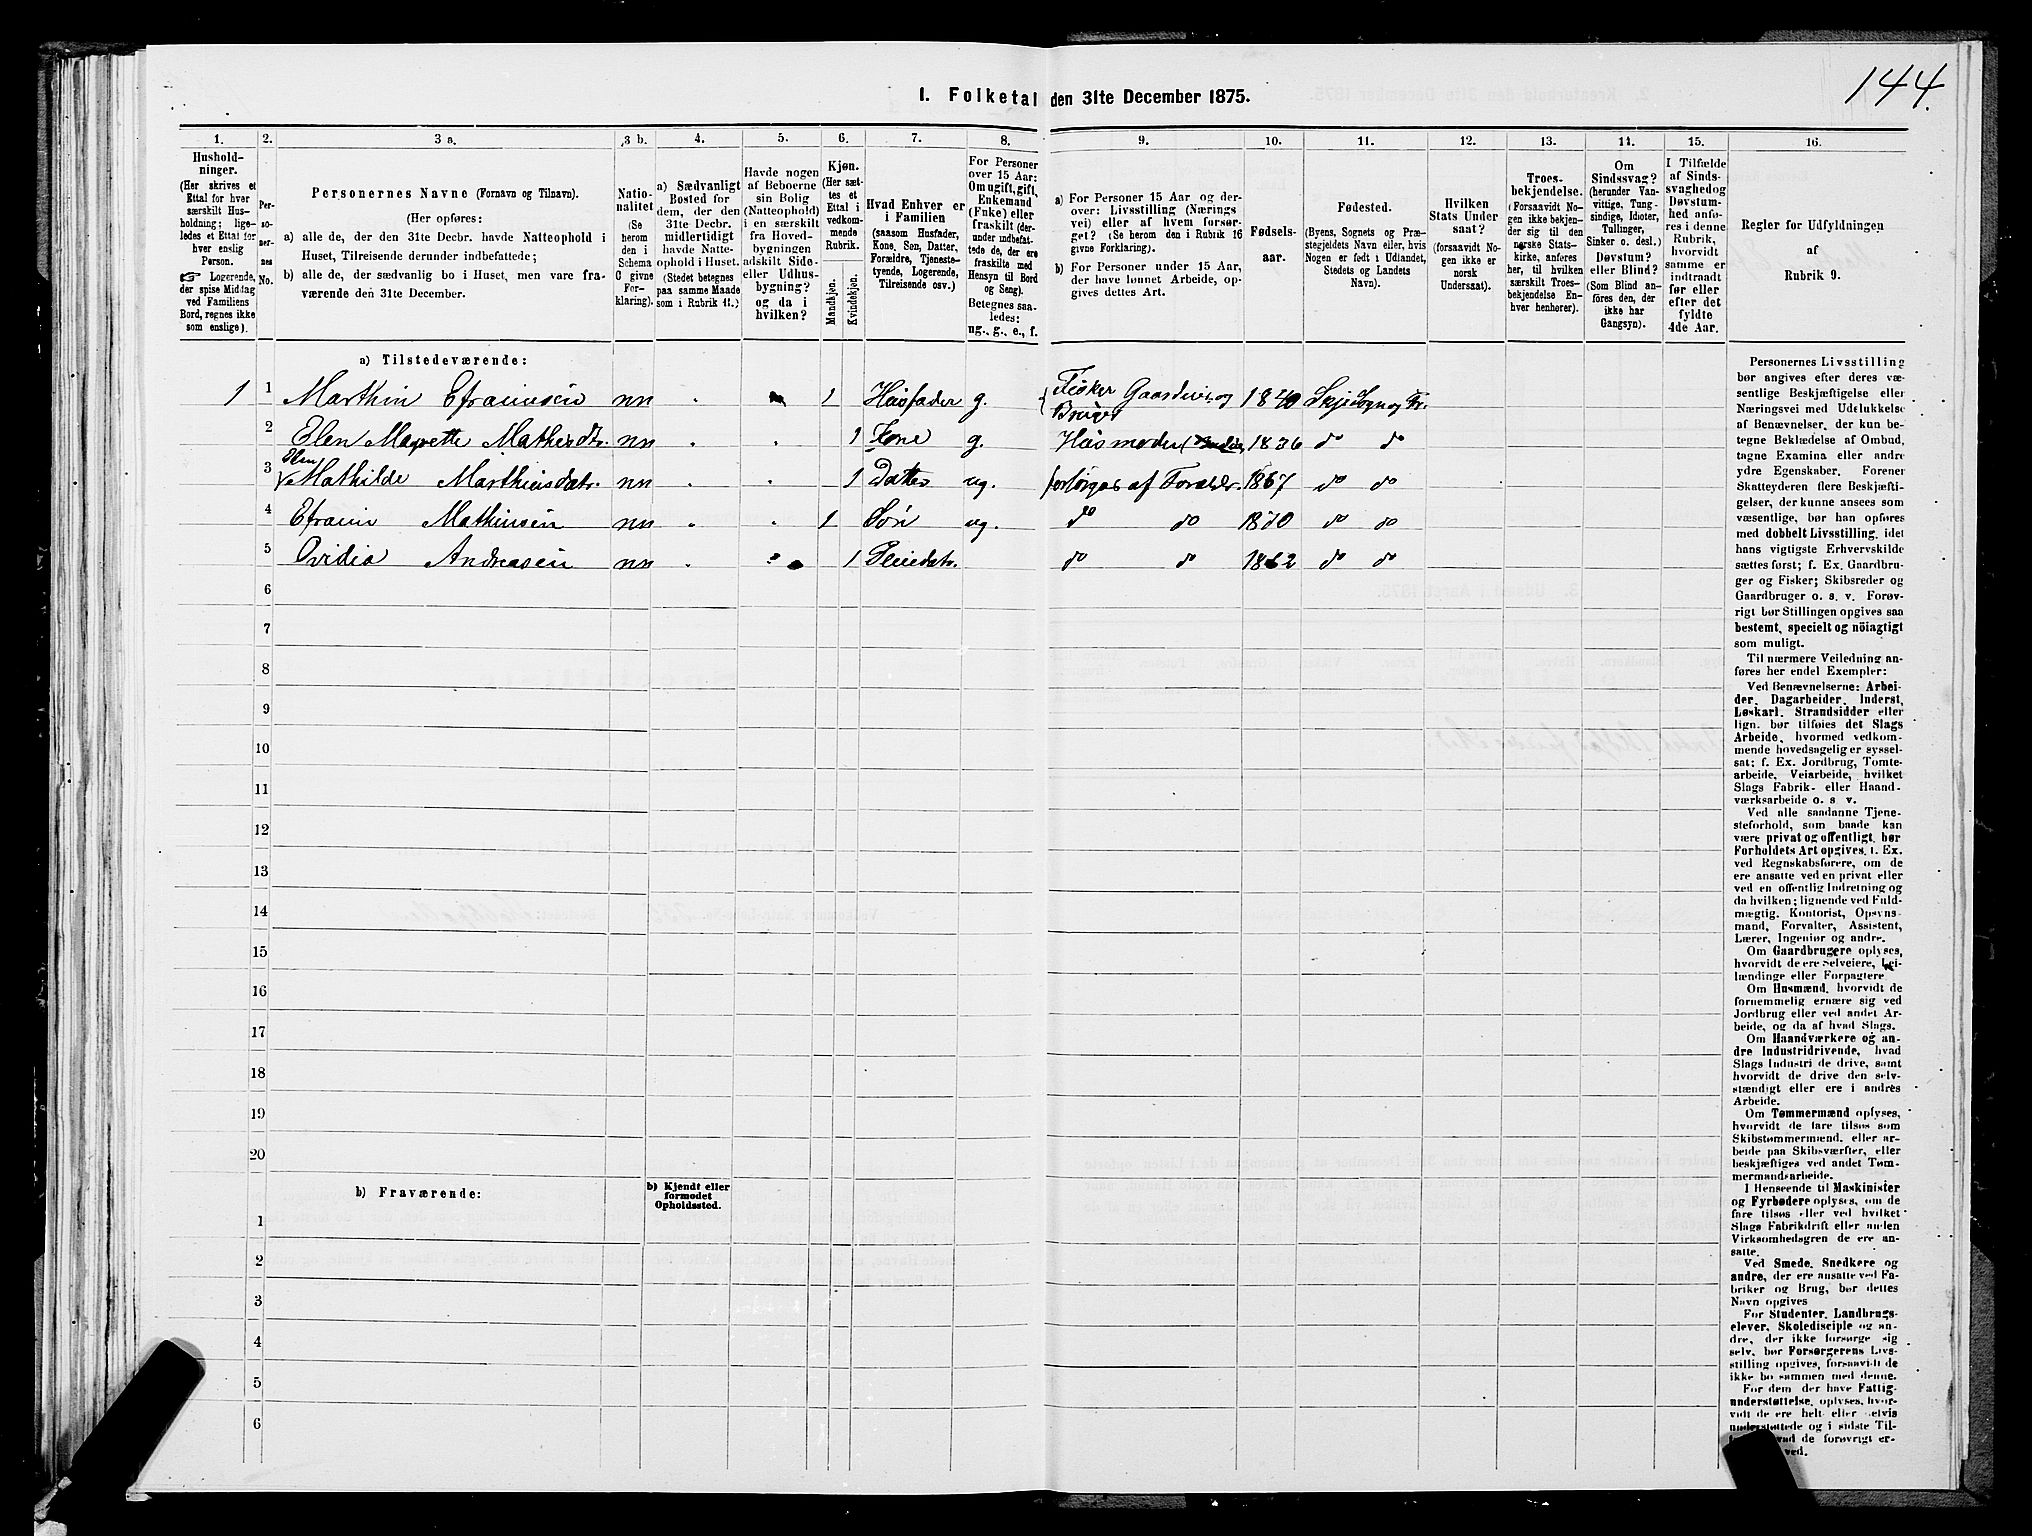 144.
I. Folketal den 31te December 1875.
1.
Hushold-
ninger.
(Her skrives et
Ettal for hver
særskilt Hus-
holdning; lige-
ledes et Ettal for
hver enslig
Person.
☞ Logerende,
der spise Middag
ved Familiens
Bord, regnes ikke
som enslige).
2.
Per-
so-
ner-
nes
No.
3 a.
Personernes Navne (Fornavn og Tilnavn).
(Her opføres:
a) alle de, der den 31te Decbr. havde Natteophold i
Huset, Tilreisende derunder indbefattede;
b) alle de, der sædvanlig bo i Huset, men vare fra-
værende den 31te December.
3 b.
Natio-
nalitet
(Se
herom
den i
Schema
O givne
For-
klaring).
4.
a) Sædvanligt
Bosted for
dem, der den
31te Decbr.
midlertidigt
havde Natte-
ophold i Huset.
(Stedet betegnes
paa samme Maade
som i Rubrik 11.)
5.
Havde nogen
af Beboerne
sin Bolig
(Natteophold)
i en særskilt
fra Hoved-
bygningen
adskilt Side-
eller Udhus-
bygning?
og da i
hvilken?
6.
Kjøn.
(Her sæt-
tes et
Ettal i
vedkom-
mende
Rubrik.
Mandkjøn.
Kvindekjøn.
7.
Hvad Enhver er
i Familien
(saasom Husfader,
Kone, Søn, Datter,
Forældre, Tjeneste-
tyende, Logerende,
Tilreisende osv.)
8.
For Personer
over 15 Aar:
Om ugift, gift,
Enkemand
(Enke) eller
fraskilt (der-
under indbefat-
tede de, der ere
fraskilte med
Hensyn til Bord
og Seng).
Betegnes saa-
ledes:
ug., g., e., f.
9.
a) For Personer 15 Aar og der-
over: Livsstilling (Nærings
vei) eller af hvem forsør-
get? (Se herom den i Rubrik 16
givne Forklaring).
b) For Personer under 15 Aar,
der have lønnet Arbeide, op-
gives dettes Art.
10.
Fødsels-
aar.
11.
Fødested.
(Byens, Sognets og Præ-
stegjeldets Navn eller, hvis
Nogen er født i Udlandet,
Stedets og Landets
Navn).
12.
Hvilken
Stats Under
saat?
(forsaavidt No-
gen ikke er
norsk
Undersaat).
13.
Troes-
bekjendelse.
(Forsaavidt No
gen ikke bekjen-
der sig til den
norske Stats-
kirke, anføres
her, til hvilken
særskilt Troes-
bekjendelse En-
hver henhører).
14.
Om
Sindssvag?
(herunder Van-
vittige, Tung-
sindige, Idioter,
Tullinger,
Sinker o. desl.)
Døvstum?
eller Blind?
(Som Blind an-
føres den, der
ikke har
Gangsyn).
15.
I Tilfælde
af Sinds-
svaghed og
Døvstum-
hed anfø-
res i denne
Rubrik,
hvorvidt
samme er
indtraadt
før eller
efter det
fyldte
4de Aar.
16.
Regler for Udfyldningen
af
Rubrik 9.
a) Tilstedeværende:
1 1 Marthin Efraimsen nn 1 Husfader g. Fisker Gaardeier og Bruger 1840 Skjæ Sogn og Pr.
2 Elen Magrette Mathisdtr. nn 1 Kone g. Husmoder 1836 do do
3 Elen Mathilde Marthinsdatr. nn 1 Datter ug. forsørges af Forældr. 1867 do do
4 Efraim Mathinsen nn 1 Søn ug. do do 1870 do do
5 Ovidia Andreasen nn 1 Pleiedatr. do do 1862 do do
6
7
8
9
10
11
12
13
14
15
16
17
18
19
20
b) Fraværende:
b) Kjendt eller
formodet
Opholdssted.
1
2
3
4
5
6
Personernes Livsstilling
bør angives efter deres væ-
sentlige Beskjæftigelse eller
Næringsvei med Udelukkelse
af Benævnelser, der kun be-
tegne Beklædelse af Ombud,
tagne Examina eller andre
ydre Egenskaber. Forener
Skatteyderen flere Beskjæfti-
gelser, der kunne ansees som
væsentlige, bør han opføres
med dobbelt Livsstilling, idet
hans vigtigste Erhvervskilde
sættes først; f. Ex. Gaardbru-
ger og Fisker; Skibsreder og
Gaardbruger o. s. v. Forøv-
rigt bør Stillingen opgives saa
bestemt, specielt og nöiagtigt
som muligt.
Til nærmere Veiledning an-
føres her endel Exempler:
Ved Benævnelserne: Arbei-
der, Dagarbeider, Inderst,
Løskarl, Strandsidder eller
lign. bør tilføies det Slags
Arbeide, hvormed vedkom-
mende hovedsagelig er syssel-
sat; f. Ex. Jordbrug, Tomte-
arbeide, Veiarbeide, hvilket
Slags Fabrik- eller Haand-
værksarbeide o. s v.
Ved alle saadanne Tjene-
steforhold, som baade kan
være privat og offentligt, bør
Forholdets Art opgives, f. Ex.
ved Regnskabsførere, om de
ere ansatte ved en privat eller
ved en offentlig Indretning og
da hvilken; lignende ved Fuld-
mægtig, Kontorist, Opsyns-
mand, Forvalter, Assistent,
Lærer, Ingeniør og andre.
Om Gaardbrugere oplyses,
hvorvidt de ere Selveiere, Lei-
lændinge eller Forpagtere
Om Husmænd, hvorvidt de
fornemmelig ernære sig ved
Jordbrug eller ved andet Ar-
beide, og da af hvad Slags.
Om Haandværkere og an-
dre Industridrivende, hvad
Slags Industri de drive, samt
hvorvidt de drive den selv-
stændigt eller ere i andres
Arbeide.
Om Tømmermænd oplyses,
hvorvidt de fare tilsøs som
Skibstømmermænd, eller ar-
beide paa Skibsværfter, eller
beskjæftiges ved andet Tøm-
mermandsarbeide.
I Henseende til Maskinister
og Fyrbødere oplyses, om de
fare tilsøs eller ved hvilket
Slags Fabrikdrift eller anden
Virksomhedsgren de ere an-
satte.
Ved Smede, Snedkere og
andre, der ere ansatte ved Fa-
briker og Brug, bør dettes
Navn opgives
For Studenter, Landbrugs-
elever, Skoledisciple og an-
dre, der ikke forsørge sig
selv, bør Forsørgerens Livs-
stilling opgives, forsaavidt de
ikke bo sammen med denne.
For dem, der have Fattig-
understøttelse, oplyses, hvor-
vidt de ere helt eller delvis
understøttede og i sidste Til-
de forøvrigt er-
ved.